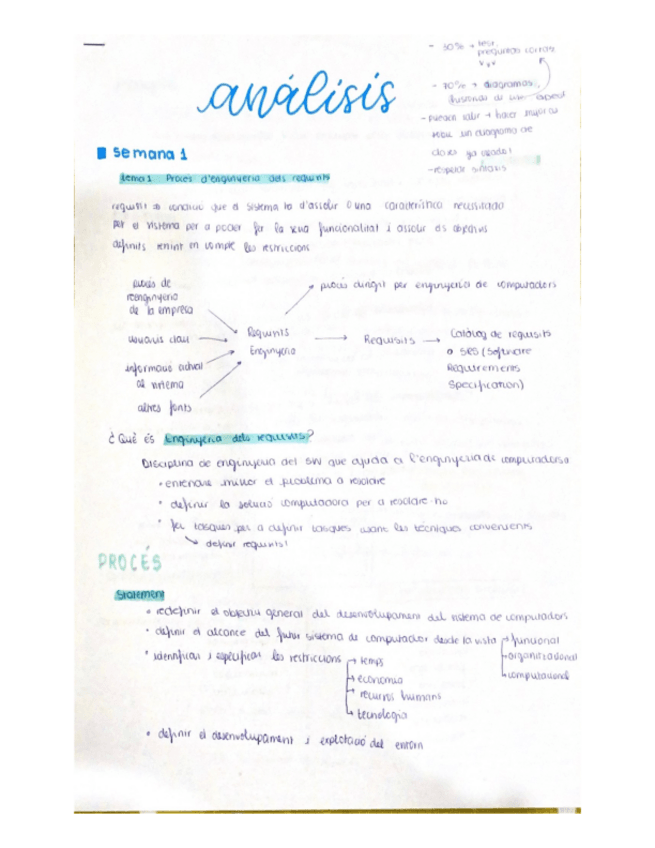 - 30% → test,
preguntas cortas
- 70% → diagramas,
análisis
- pueden salir → hacer
un diagrama de
clases ya dado!
- respetar sintaxis
semana 1
tema 1 Procés d'enginyeria dels requisits
requisit → condició que el sistema ha d'assolir o una característica necessitada
per el sistema per a poder fer la seua funcionalitat i assolir els objectius
definits tenint en compte les restriccions
procés de
reenginyeria
de la empresa
usuaris clau
informació actual
del sistema
altres fonts
procés dirigit per enginyeria de computadors
Requisits
Enginyeria
Requisits
Catàleg de requisits
o SRS (Software
Requirements
Specification)
¿Què és Enginyeria dels requisits?
Disciplina de enginyeria del SW que ajuda a l'enginyeria de computadors a
• entendre millor el problema a resoldre
• definir la solució computadora per a resoldre-ho
• fer tasques per a definir tasques usant les tècniques convenients
definir requisits!
PROCÉS
Statement
• redefinir el objectiu general del desenvolupament del sistema de computadors
• definir el alcance del futur sistema de computador desde la vista
funcional
organitzacional
computacional
• identificar i especificar les restriccions
temps
economia
recursos humans
tecnologia
• definir el desenvolupament i explotació del entorn